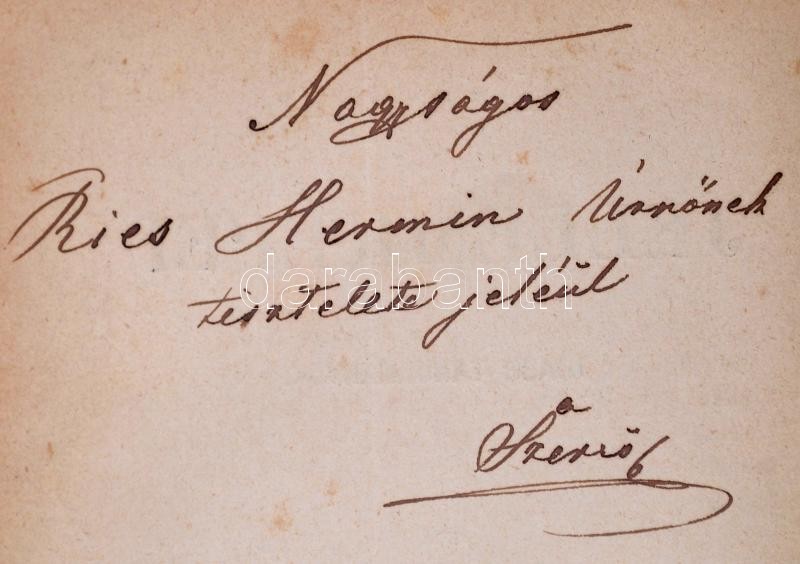 Nagyságos
Ries Hermin Úrnőnek
tisztelete jeléül
darabanth
a
Szerző